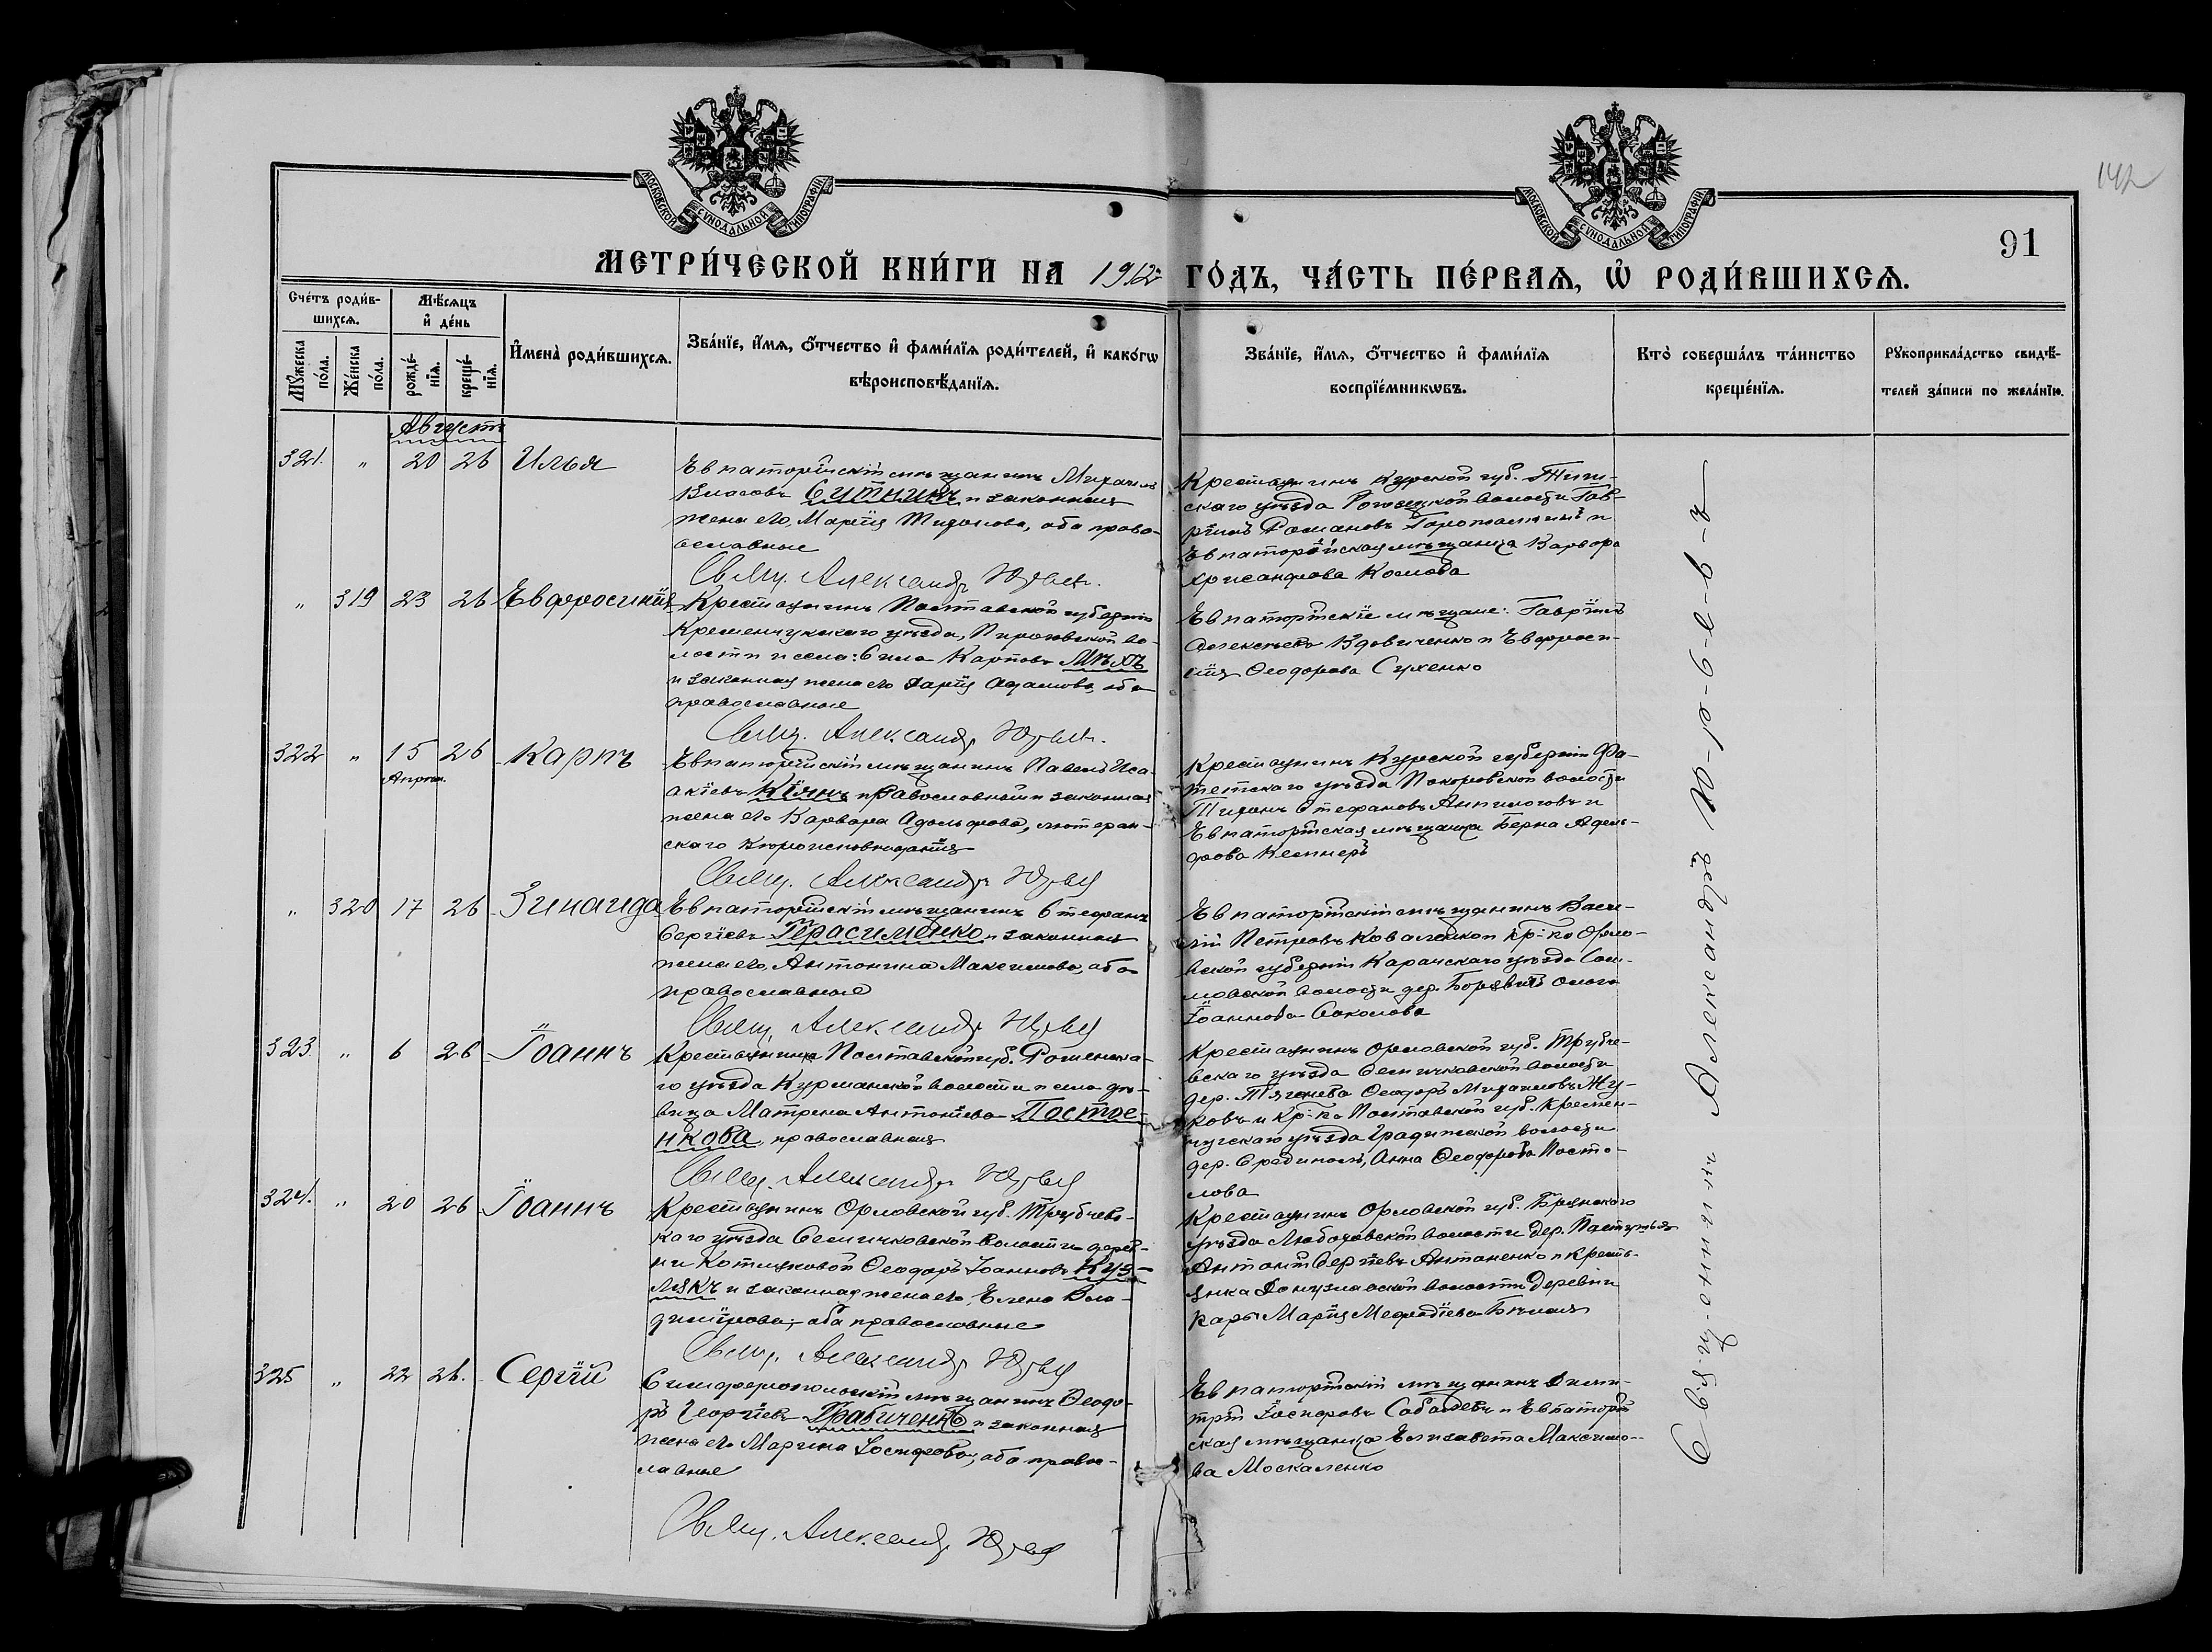 142
91
МОСКОВСКОЙ СѴНОДАЛЬНОЙ ТИПОГРАФІИ
МОСКОВСКОЙ СѴНОДАЛЬНОЙ ТИПОГРАФІИ
МЕТРИ́ЧЕСКОЙ КНИ́ГИ НА 1912 ГО́ДЪ, ЧА́СТЬ ПЕ́РВАѦ, Ѽ РОДИ́ВШИХСѦ.
Сче́тъ роди́в-
шихсѧ.
Мѣ́сѧцъ
и҆ де́нь
Мꙋ́жеска по́ла.
Же́нска по́ла.
рожде́-нїѧ.
креще́-нїѧ.
И҆мена̀ роди́вшихсѧ.
Зва́нїе, и҆́мѧ, ѻ҆́тчество и҆ фами́лїѧ роди́телей, и҆ како́гѡ
вѣроисповѣ́данїѧ.
Зва́нїе, и҆́мѧ, ѻ҆́тчество и҆ фами́лїѧ
воспрїе́мникѡвъ.
Кто̀ соверша́лъ та́инство
креще́нїѧ.
Рꙋкоприкла́дство свидѣ́-
телей за́писи по жела́нїю.
Августъ
321. " 20 26 Илья
Евпаторійскій мѣщанинъ Михаилъ
Власовъ Ситникъ и законная
жена его, Марія Тихонова, оба право-
славные
Свящ. Александръ
Крестьянинъ Курской губ. Тим-
скаго уѣзда Рогозецкой волости Гав-
ріилъ Романовъ и
Евпаторійская мѣщанка Варвара
Хрисанфова Комова
" 319 23 26 Евфросинія
Крестьянинъ Полтавской губерніи
Кременчугскаго уѣзда, Пироговской во-
лости и села: Сила Карповъ Мѣхъ
и законная жена его Дарія Адамова, оба
православные
Свящ. Александръ
Евпаторійскіе мѣщане: Гавріилъ
Алексѣевъ Вдовиченко и Евфроси-
нія Ѳеодорова Сухенко
322 " 15 26 Карпъ
Апрѣля.
Евпаторійскій мѣщанинъ Павелъ Иса-
акіевъ Кіянъ православный и законная
жена его Варвара Адольфова, лютеран-
скаго вѣроисповѣданія
Свящ. Александръ
Крестьянинъ Курской губерніи Фа-
тежскаго уѣзда Покровской волости
Тихонъ Стефановъ Анпилоговъ и
Евпаторійская мѣщанка Берта Адоль-
фова Кемлеръ
" 320 17 26 Зинаида
Евпаторійскій мѣщанинъ Стефанъ
Сергіевъ Герасименко и законная
жена его, Антонина Максимова, оба
православные
Свящ. Александръ
Евпаторійскій мѣщанинъ Васи-
лій Петровъ Коваленко и кр-ка Орло-
вской губерніи Карачевскаго уѣзда
волости дер. Ольга
Іоаннова Соколова
323. " 6 26 Іоаннъ
Крестьянка Полтавской губ. Роменска-
го уѣзда Курманской волости и села дѣ-
вица Матрена Антоніева Постое-
нкова, православная
Свящ. Александръ
Крестьянинъ Орловской губ. Трубче-
вскаго уѣзда Селичковской волости
дер. Ѳеодоръ Михаиловъ Жу-
ковъ и кр-ка Полтавской губ. Кремен-
чугскаго уѣзда Градижской волости
дер. Анна Ѳеодорова Посто-
лова
324. " 20 26 Іоаннъ
Крестьянинъ Орловской губ. Трубчевс-
каго уѣзда Селичковской волости дерев-
ни Котляковой Ѳеодоръ Іоанновъ Куз-
лякъ и законная жена его, Елена Вла-
димірова; оба православные
Свящ. Александръ
Крестьянинъ Орловской губ. Брянскаго
уѣзда Любоховской волости дер. Пастушья
Антоній Сергіевъ Антоненко и кресть-
янка Донузлавской волости деревни
Марія Меѳодіева
325 " 22 26. Сергій
Симферопольскій мѣщанинъ Ѳеодо-
ръ Георгіевъ Грабиченко и законная
жена его Марина Іосифова, оба право-
славные
Свящ. Александръ
Евпаторійскій мѣщанинъ Дими-
трій Іосифовъ и Евпаторій-
ская мѣщанка Елизавета Максимо-
ва Москаленко
Священникъ Александръ